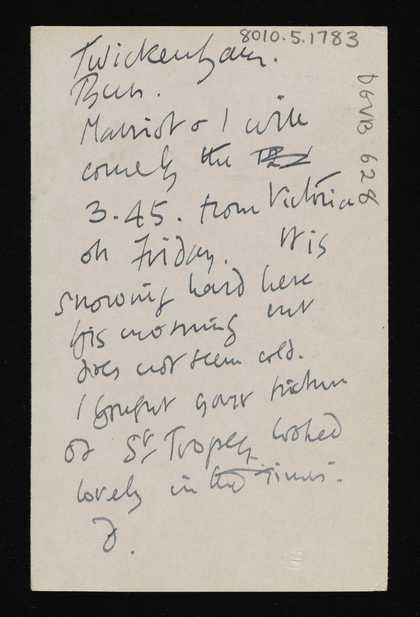 8010.5.1783
Twickenham.
& I will
come by the
3.45. from Victoria
on Friday. It is
snowing hard here
this morning but
does not seem cold.
I thought your picture
of St Tropez looked
lovely in the Times.
D.
DGVB 628